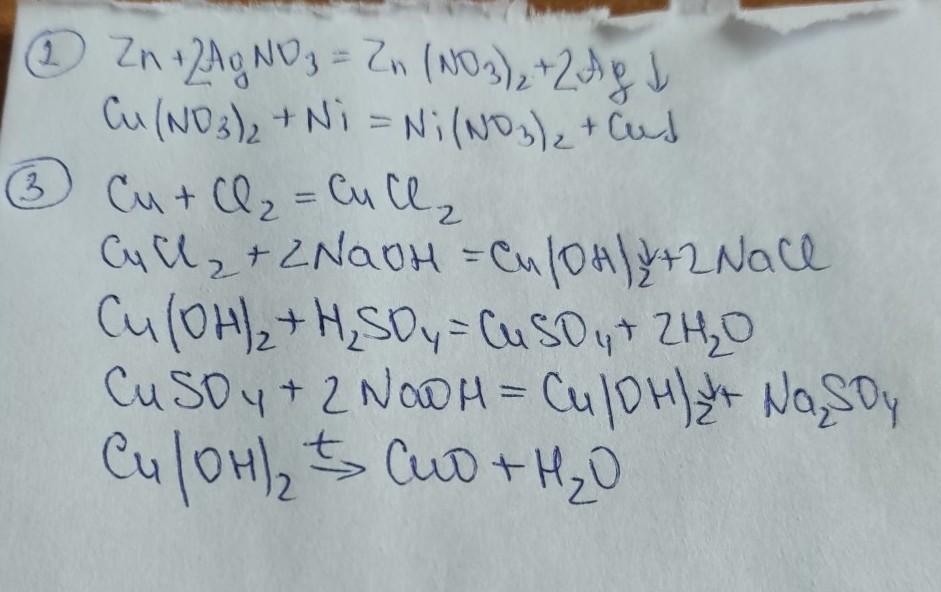 ② Zn + 2AgNO₃ = Zn(NO₃)₂ + 2Ag↓
Cu(NO₃)₂ + Ni = Ni(NO₃)₂ + Cu↓
③ Cu + Cl₂ = CuCl₂
CuCl₂ + 2NaOH = Cu(OH)₂↓ + 2NaCl
Cu(OH)₂ + H₂SO₄ = CuSO₄ + 2H₂O
CuSO₄ + 2NaOH = Cu(OH)₂↓ + Na₂SO₄
Cu(OH)₂ t→ CuO + H₂O